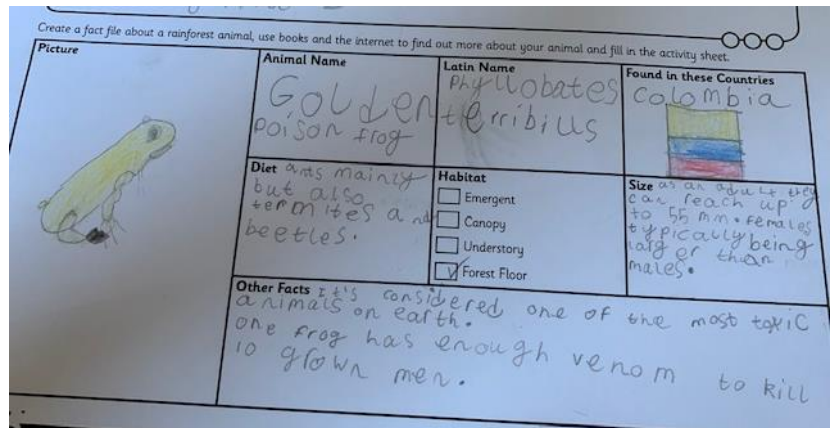 Create a fact file about a rainforest animal, use books and the internet to find out more about your animal and fill in the activity sheet.
Picture
Animal Name
Golden
poison frog
Latin Name
Phyllobates
terribilis
Found in these Countries
Colombia
Diet ants mainly
but also
termites and
beetles.
Habitat
Emergent
Canopy
Understory
Forest Floor
Size as an adult they
can reach up
to 55 mm. females
typically being
larger than
males.
Other Facts It's considered one of the most toxic
animals on earth.
one frog has enough venom to kill
10 grown men.